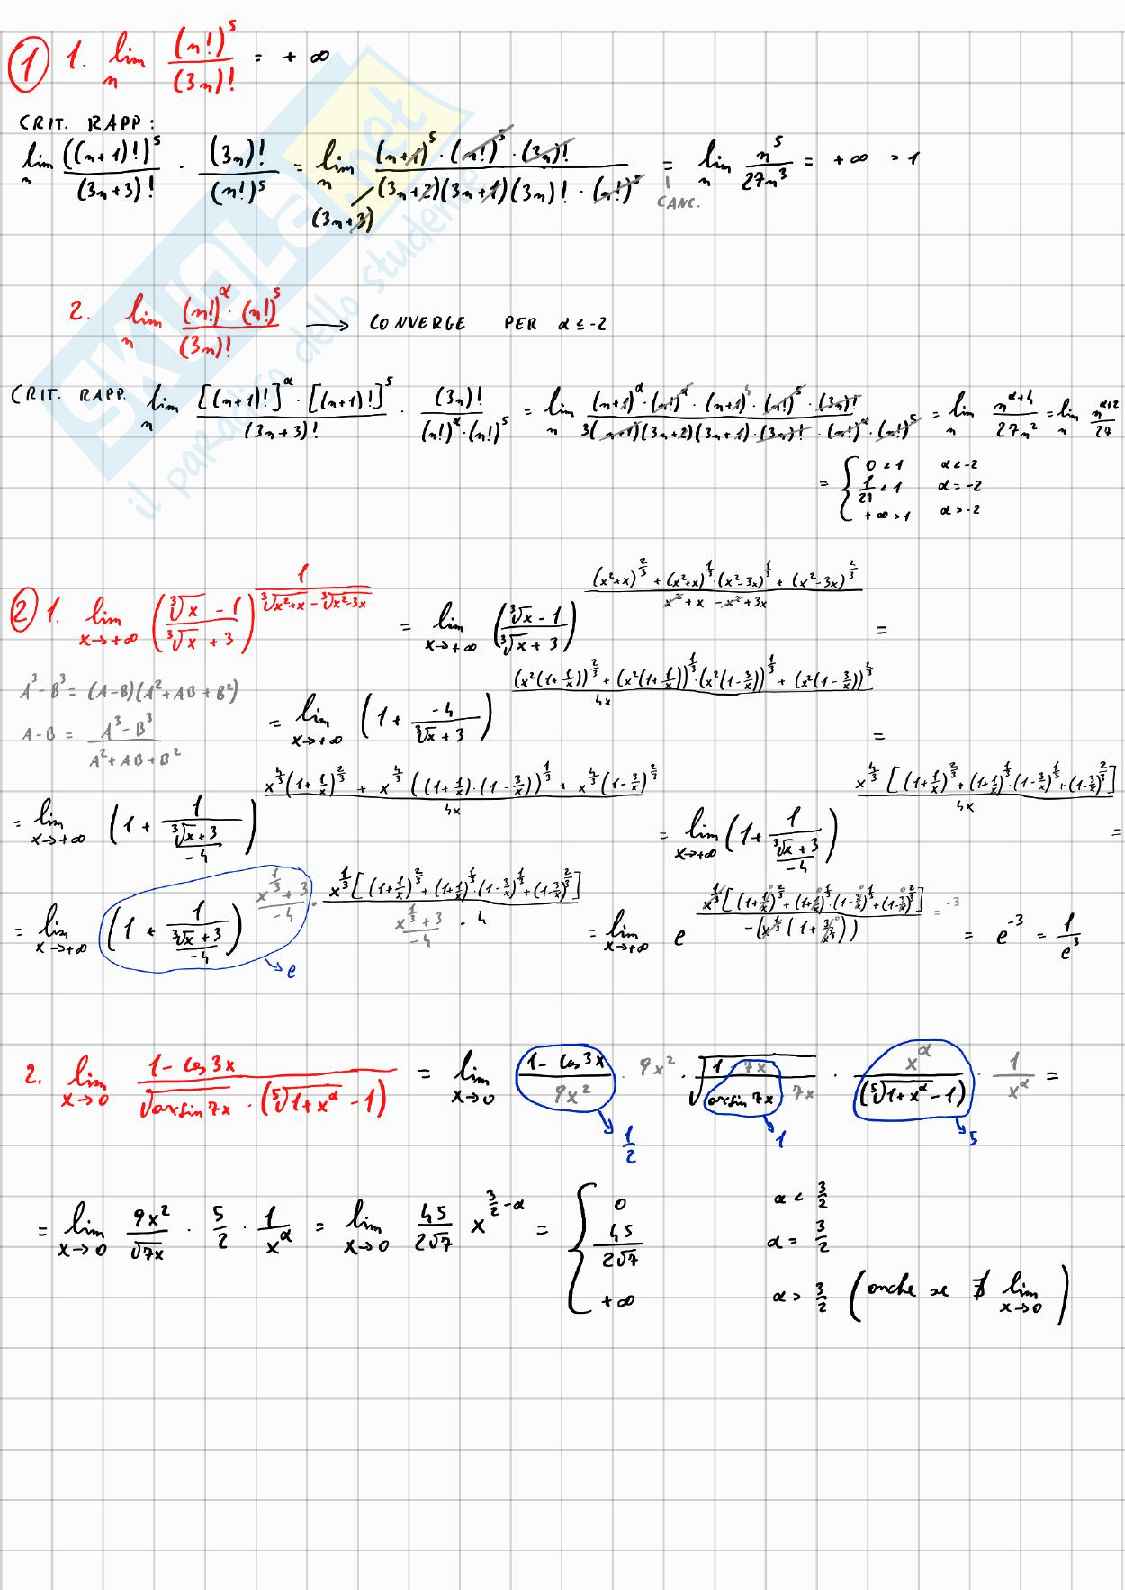 ① 1. lim_n (n!)^5 / (3n)! = +∞
CRIT. RAPP:
lim_n ((n+1)!)^5 / (3n+3)! · (3n)! / (n!)^5 = lim_n (n+1)^5 · (n!)^5 · (3n)! / (3n+3)(3n+2)(3n+1)(3n)! · (n!)^5 = lim_n n^5 / 27n^3 = +∞ > 1
CANC.
2. lim_n (n!)^α · (n!)^5 / (3n)! → CONVERGE PER α ≤ -2
CRIT. RAPP. lim_n [(n+1)!]^α · [(n+1)!]^5 / (3n+3)! · (3n)! / (n!)^α · (n!)^5 = lim_n (n+1)^α · (n!)^α · (n+1)^5 · (n!)^5 · (3n)! / 3(n+1)(3n+2)(3n+1) · (3n)! · (n!)^α · (n!)^5 = lim_n n^(α+4) / 27n^2 = lim_n n^(α+2) / 27
= { 0 < 1 α < -2
1/27 < 1 α = -2
+∞ > 1 α > -2
② 1. lim_x→+∞ ((∛x - 1) / (∛x + 3))^(1 / (∛(x²+x) - ∛(x²-3x))) = lim_x→+∞ ((∛x - 1) / (∛x + 3))^(((x²+x)^(2/3) + (x²+x)^(1/3) · (x²-3x)^(1/3) + (x²-3x)^(2/3)) / (x²+x-x²+3x)) =
A³-B³ = (A-B)(A²+AB+B²)
A-B = (A³-B³) / (A²+AB+B²)
= lim_x→+∞ (1 + -4 / (∛x + 3))^(((x²(1+1/x))^(2/3) + (x²(1+1/x))^(1/3) · (x²(1-3/x))^(1/3) + (x²(1-3/x))^(2/3)) / 4x) =
= lim_x→+∞ (1 + 1 / ((∛x+3) / -4))^((x^(4/3)(1+1/x)^(2/3) + x^(4/3)((1+1/x)·(1-3/x))^(1/3) + x^(4/3)(1-3/x)^(2/3)) / 4x) = lim_x→+∞ (1 + 1 / ((∛x+3) / -4))^(x^(4/3)[(1+1/x)^(2/3) + (1+1/x)^(1/3)·(1-3/x)^(1/3) + (1-3/x)^(2/3)] / 4x) =
= lim_x→+∞ (1 + 1 / ((∛x+3) / -4))^((x^(1/3)+3) / -4 · x^(1/3)[(1+1/x)^(2/3) + (1+1/x)^(1/3)·(1-3/x)^(1/3) + (1-3/x)^(2/3)] / ((x^(1/3)+3) / -4 · 4)) = lim_x→+∞ e^(x^(1/3)[(1+1/x)^(2/3) + (1+1/x)^(1/3)·(1-3/x)^(1/3) + (1-3/x)^(2/3)] / -(x^(1/3)(1+3/x^(1/3)))) = -3 = e^-3 = 1/e³
→ e
2. lim_x→0 (1 - cos 3x) / (√(arcsin 7x) · (⁵√(1+x^α) - 1)) = lim_x→0 (1 - cos 3x) / 9x² · 9x² · √(1 7x / (arcsin 7x 7x)) · x^α / (⁵√(1+x^α) - 1) · 1/x^α =
→ 1/2 → 1 → 5
= lim_x→0 9x² / √7x · 5/2 · 1/x^α = lim_x→0 45 / 2√7 x^(3/2-α) = { 0 α < 3/2
45 / 2√7 α = 3/2
+∞ α > 3/2 (anche se ∄ lim_x→0)
SKUOLA.net
il paradiso dello studente